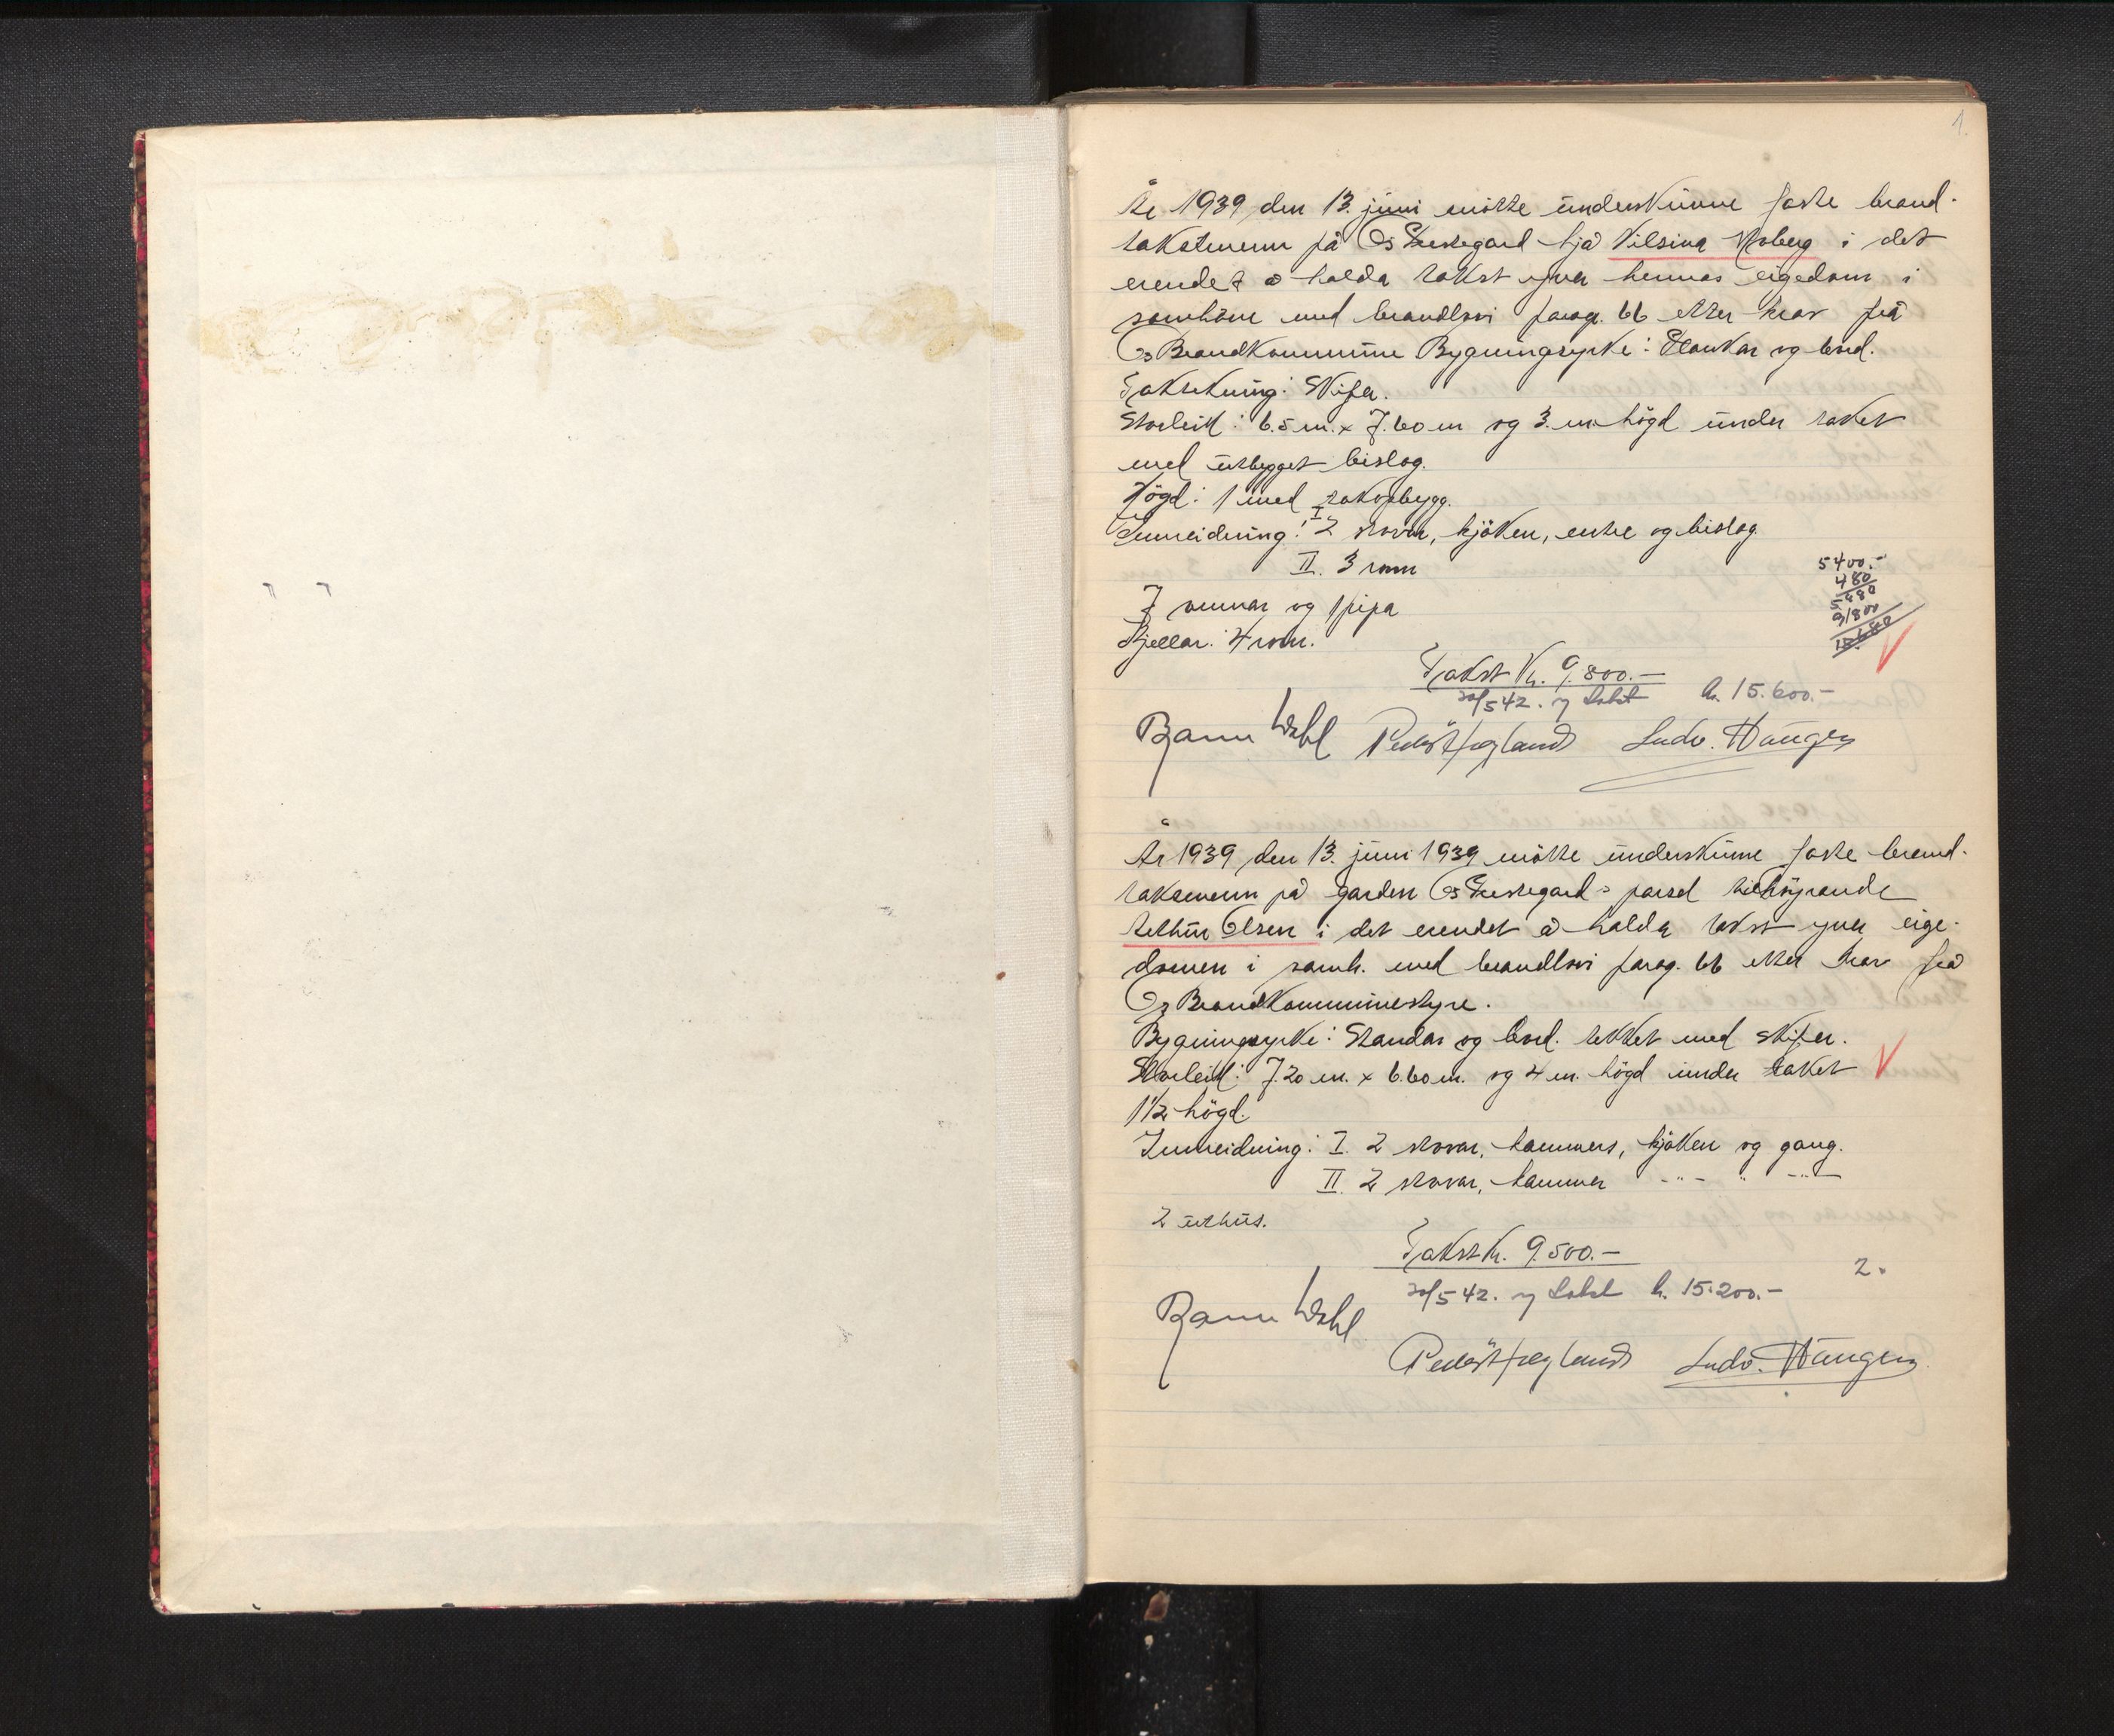 1.
År 1939 den 13. juni møtte underskrivne faste brand-
takstmenn på Os Prestegard hjå Vilsina Moberg i det
erendet å halda takst yver hennas eigedom i
samhøve med brandlovi parag. 66 etter krav frå
Os Brandkommune Bygningsyrke: Plankar og bord.
Taktekning: Skifer.
Storleik: 6.5 m. x 7.60 m og 3. m. högd under taket
med utbygget bislag.
Högd: 1 med takopbygg.
Innreidning: I 2 stovor, kjöken, entre og bislag.
II. 3 rom
5400.-
480
5880
9/800
7 omnar og 1 pipa
Kjellar: 4 rom.
Takst Kr. 9.800.-
20/5 42. ny takst kr. 15.600.-
Ludv. Haugen
År 1939 den 13. juni 1939 møtte underskrivne faste brand-
taksmenn på garden Os Prestegard - parsel tilhøyrande
Arthur Olsen i det erendet å halda takst yver eige-
domen i samh. med brandlovi parag. 66 etter krav frå
Os Brandkommunestyre.
Bygningsyrke: Standar og bord. tekket med skifer.
Storleik: 7.20 m. x 6.60 m. og 4 m. högd under taket
1 1/2 högd.
Innreidning: I. 2 stovar, kammers, kjöken og gang.
II. 2 stovar, kammer -"- " -"-
2 uthus.
Takst Kr. 9.500.-
2.
20/5 42. ny takst kr. 15.200.-
Ludv. Haugen